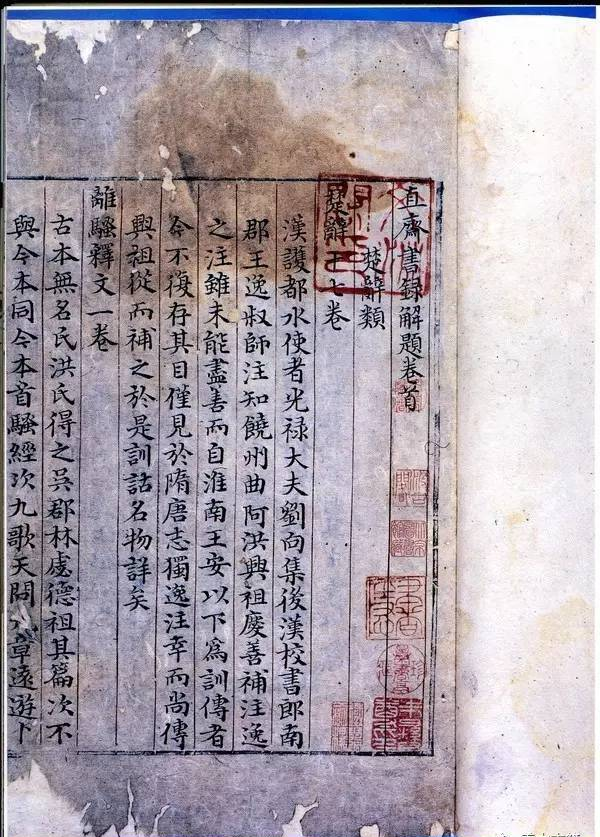 直齋書録解題卷首
楚辭類
楚辭十七卷
漢護都水使者光禄大夫劉向集後漢校書郎南
郡王逸叔師注知饒州曲阿洪興祖慶善補注逸
之注雖未能盡善而自淮南王安以下爲訓傳者
今不復存其目僅見於隋唐志獨逸注幸而尚傳
興祖從而補之於是訓詁名物詳矣
離騷釋文一卷
古本無名氏洪氏得之吳郡林虙德祖其篇次不
與今本同今本首騷經次九歌天問九章遠遊卜